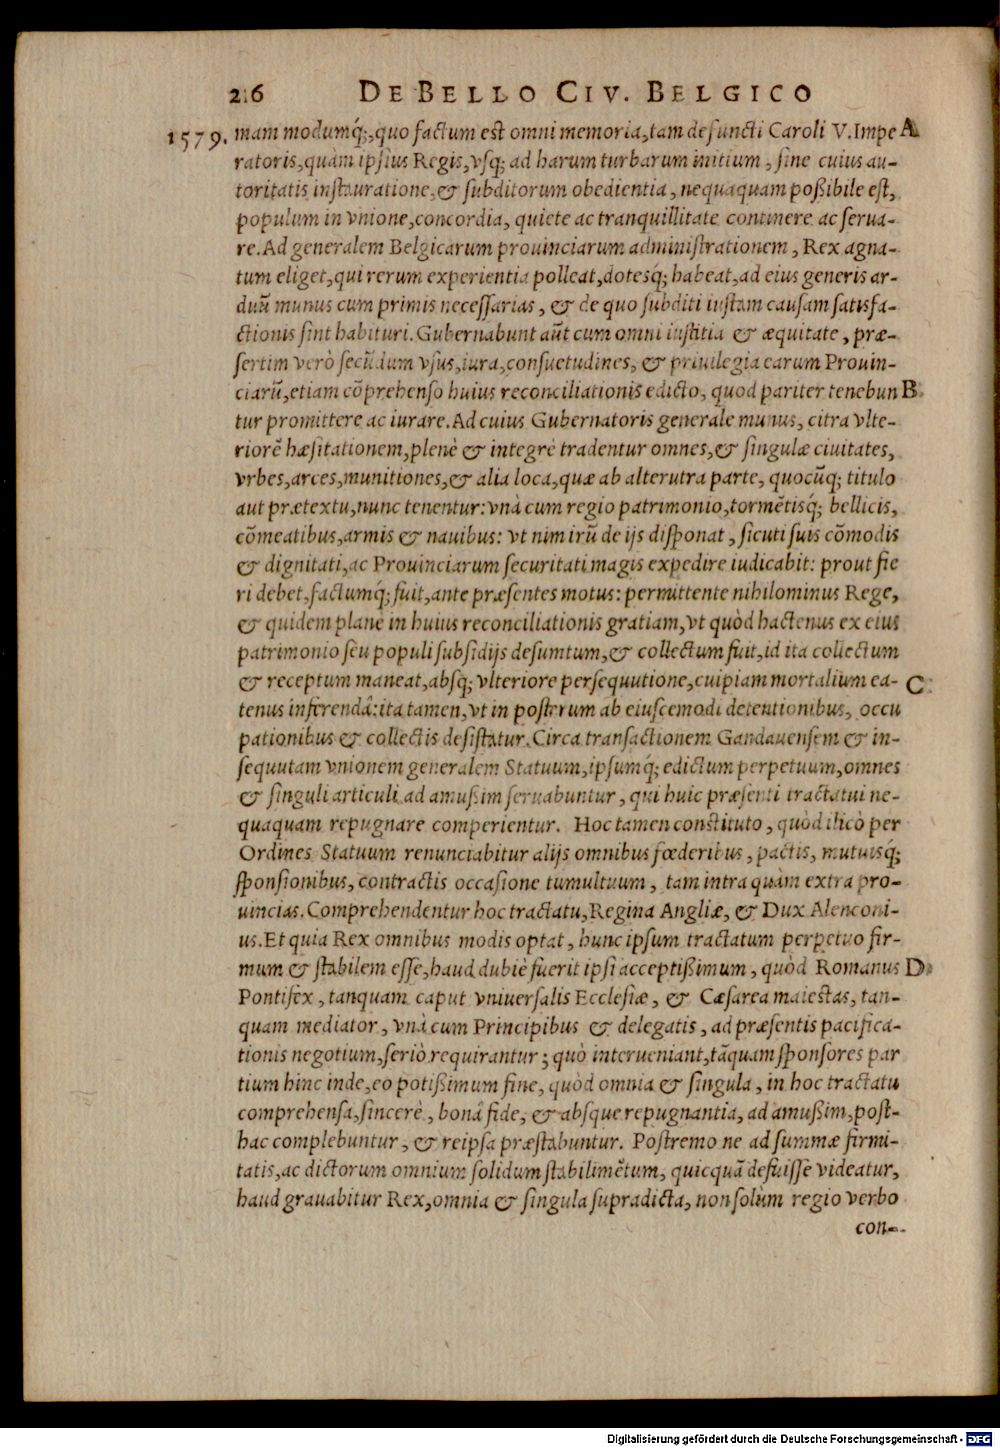 2.6 DE BELLO CIV. BELGICO
1579. mam modumq́;, quo factum est omni memoria, tam defuncti Caroli V. Impe A
ratoris, quàm ipsius Regis, vsq; ad harum turbarum initium, sine cuius au-
toritatis instauratione, & subditorum obedientia, nequaquam poßibile est,
populum in vnione, concordia, quiete ac tranquillitate continere ac serua-
re. Ad generalem Belgicarum prouinciarum administrationem, Rex agna-
tum eliget, qui rerum experientia polleat, dotesq; habeat, ad eius generis ar-
duũ munus cum primis necessarias, & de quo subditi iustam causam satisfa-
ctionis sint habituri. Gubernabunt aũt cum omni iustitia & æquitate, præ-
sertim verò secũdum vsus, iura, consuetudines, & priuilegia earum Prouin-
ciarũ, etiam cõprehenso huius reconciliationis edicto, quod pariter tenebun B
tur promittere ac iurare. Ad cuius Gubernatoris generale munus, citra vlte-
riorẽ hæsitationem, plenè & integrè tradentur omnes, & singulæ ciuitates,
vrbes, arces, munitiones, & alia loca, quæ ab alterutra parte, quocũq; titulo
aut prætextu, nunc tenentur: vnà cum regio patrimonio, tormẽtisq́; bellicis,
cõmeatibus, armis & nauibus: vt nimirũ de ijs disponat, sicuti suis cõmodis
& dignitati, ac Prouinciarum securitati magis expedire iudicabit: prout fie
ri debet, factumq́; fuit, ante præsentes motus: permittente nihilominus Rege,
& quidem planè in huius reconciliationis gratiam, vt quòd hactenus ex eius
patrimonio seu populi subsidijs desumtum, & collectum fuit, id ita collectum
& receptum maneat, absq; vlteriore persequutione, cuipiam mortalium ea- C
tenus inferendâ: ita tamen, vt in posterum ab eiuscemodi detentionibus, occu
pationibus & collectis desistatur. Circa transactionem Gandauensem & in-
sequutam vnionem generalem Statuum, ipsumq́; edictum perpetuum, omnes
& singuli articuli ad amußim seruabuntur, qui huic præsenti tractatui ne-
quaquam repugnare comperientur. Hoc tamen constituto, quòd ilicò per
Ordines Statuum renunciabitur alijs omnibus fœderibus, pactis, mutuisq́;
sponsionibus, contractis occasione tumultuum, tam intra quàm extra pro-
uincias. Comprehendentur hoc tractatu, Regina Angliæ, & Dux Alenconi-
us. Et quia Rex omnibus modis optat, hunc ipsum tractatum perpetuo fir-
mum & stabilem esse, haud dubiè fuerit ipsi acceptißimum, quòd Romanus D
Pontifex, tanquam caput vniuersalis Ecclesiæ, & Cæsarea maiestas, tan-
quam mediator, vnà cum Principibus & delegatis, ad præsentis pacifica-
tionis negotium, seriò requirantur; quò interueniant, tãquam sponsores par
tium hinc inde, eo potißimum fine, quòd omnia & singula, in hoc tractatu
comprehensa, sincerè, bonâ fide, & absque repugnantia, ad amußim, post-
hac complebuntur, & reipsa præstabuntur. Postremo ne ad summæ firmi-
tatis, ac dictorum omnium solidum stabilimẽtum, quicquã defuisse videatur,
haud grauabitur Rex, omnia & singula supradicta, non solùm regio verbo
con-
Digitalisierung gefördert durch die Deutsche Forschungsgemeinschaft - DFG